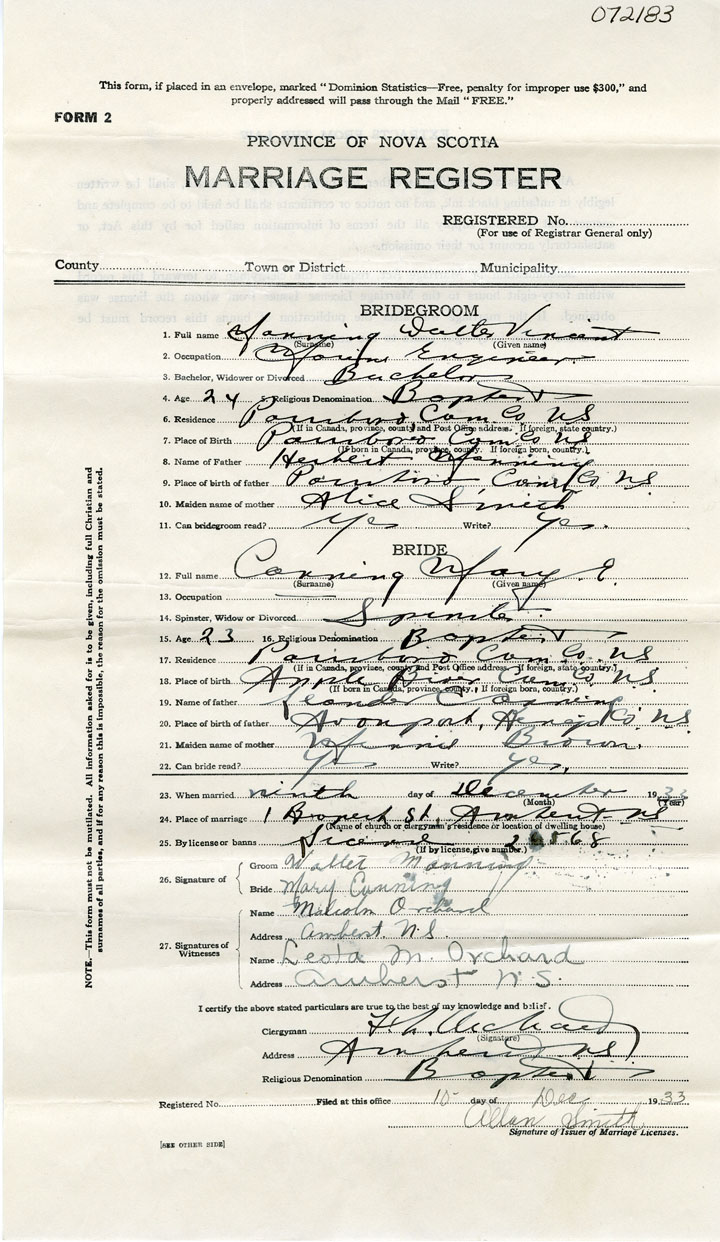 072183
This form, if placed in an envelope, marked "Dominion Statistics—Free, penalty for improper use $300," and
properly addressed will pass through the Mail "FREE."
FORM 2
PROVINCE OF NOVA SCOTIA
MARRIAGE REGISTER
REGISTERED No.
(For use of Registrar General only)
County Town or District Municipality
BRIDEGROOM
1. Full name Manning Walter Vincent
(Surname) (Given name)
2. Occupation Marine Engineer
3. Bachelor, Widower or Divorced Bachelor
4. Age 24 5. Religious Denomination Baptist
6. Residence Parrsboro Cum Co NS
(If in Canada, province, county and Post Office address. If foreign, state country.)
7. Place of Birth Parrsboro Cum Co NS
(If born in Canada, province, county. If foreign born, country.)
8. Name of Father Herbert Manning
9. Place of birth of father Parrsboro Cum Co NS
10. Maiden name of mother Alice Smith
11. Can bridegroom read? Yes Write? Yes.
BRIDE
12. Full name Canning Mary E.
(Surname) (Given name)
13. Occupation
14. Spinster, Widow or Divorced Spinster
15. Age 23 16. Religious Denomination Baptist
17. Residence Parrsboro Cum Co. NS
(If in Canada, province, county and Post Office address. If foreign, state country.)
18. Place of birth Apple River Cum Co. NS
(If born in Canada, province, county. If foreign born, country.)
19. Name of father Leander C Canning
20. Place of birth of father Avonport, Kings Co NS
21. Maiden name of mother Minnie Brown.
22. Can bride read? Yes Write? Yes,
23. When married ninth day of December 1933
(Month) (Year)
24. Place of marriage 1 St, Amherst NS
(Name of church or clergyman's residence or location of dwelling house)
25. By license or banns License
(If by license, give number.)
26. Signature of Groom Walter Manning
Bride Mary Canning
27. Signatures of Witnesses
Name Malcolm Orchard
Address Amherst N.S.
Name Leota M. Orchard
Address Amherst N.S.
I certify the above stated particulars are true to the best of my knowledge and belief.
Clergyman Orchard
(Signature)
Address Amherst NS
Religious Denomination Baptist
Registered No. Filed at this office 15 day of Dec 1933
Allan Smith
Signature of Issuer of Marriage Licenses.
[SEE OTHER SIDE]
NOTE.—This form must not be mutilated. All information asked for is to be given, including full Christian and
surnames of all parties, and if for any reason this is impossible, the reason for the omission must be stated.